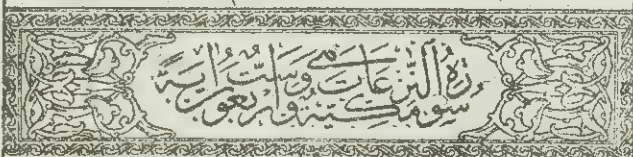 سورة النزعات مكية وست وأربعون آية